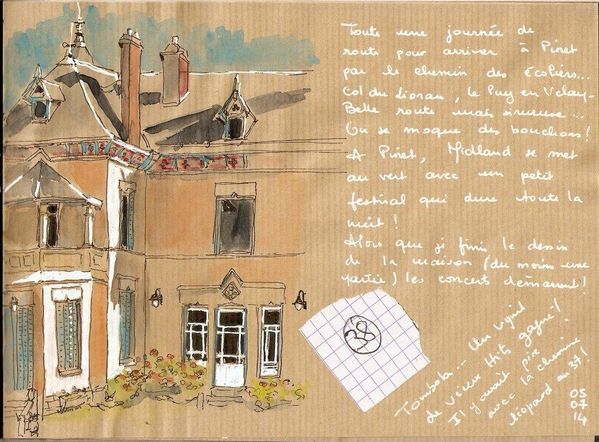 Toute une journée de
route pour arriver à Piret
par le chemin des Ecoliers...
Col du Lioran, le Puy en Velay.
Belle route mais sinueuse...
On se moque des bouchons!
A Piret, Midland se met
au vert avec un petit
festival qui dure toute la
nuit!
Alors que je finis le dessin
de la maison (du moins une
partie) les concerts démarrent!
38
Tombola... Un vinyl
de vieux Hits gagné!
Il y avait pire
avec la chemise
léopard au 37!
05
07
14